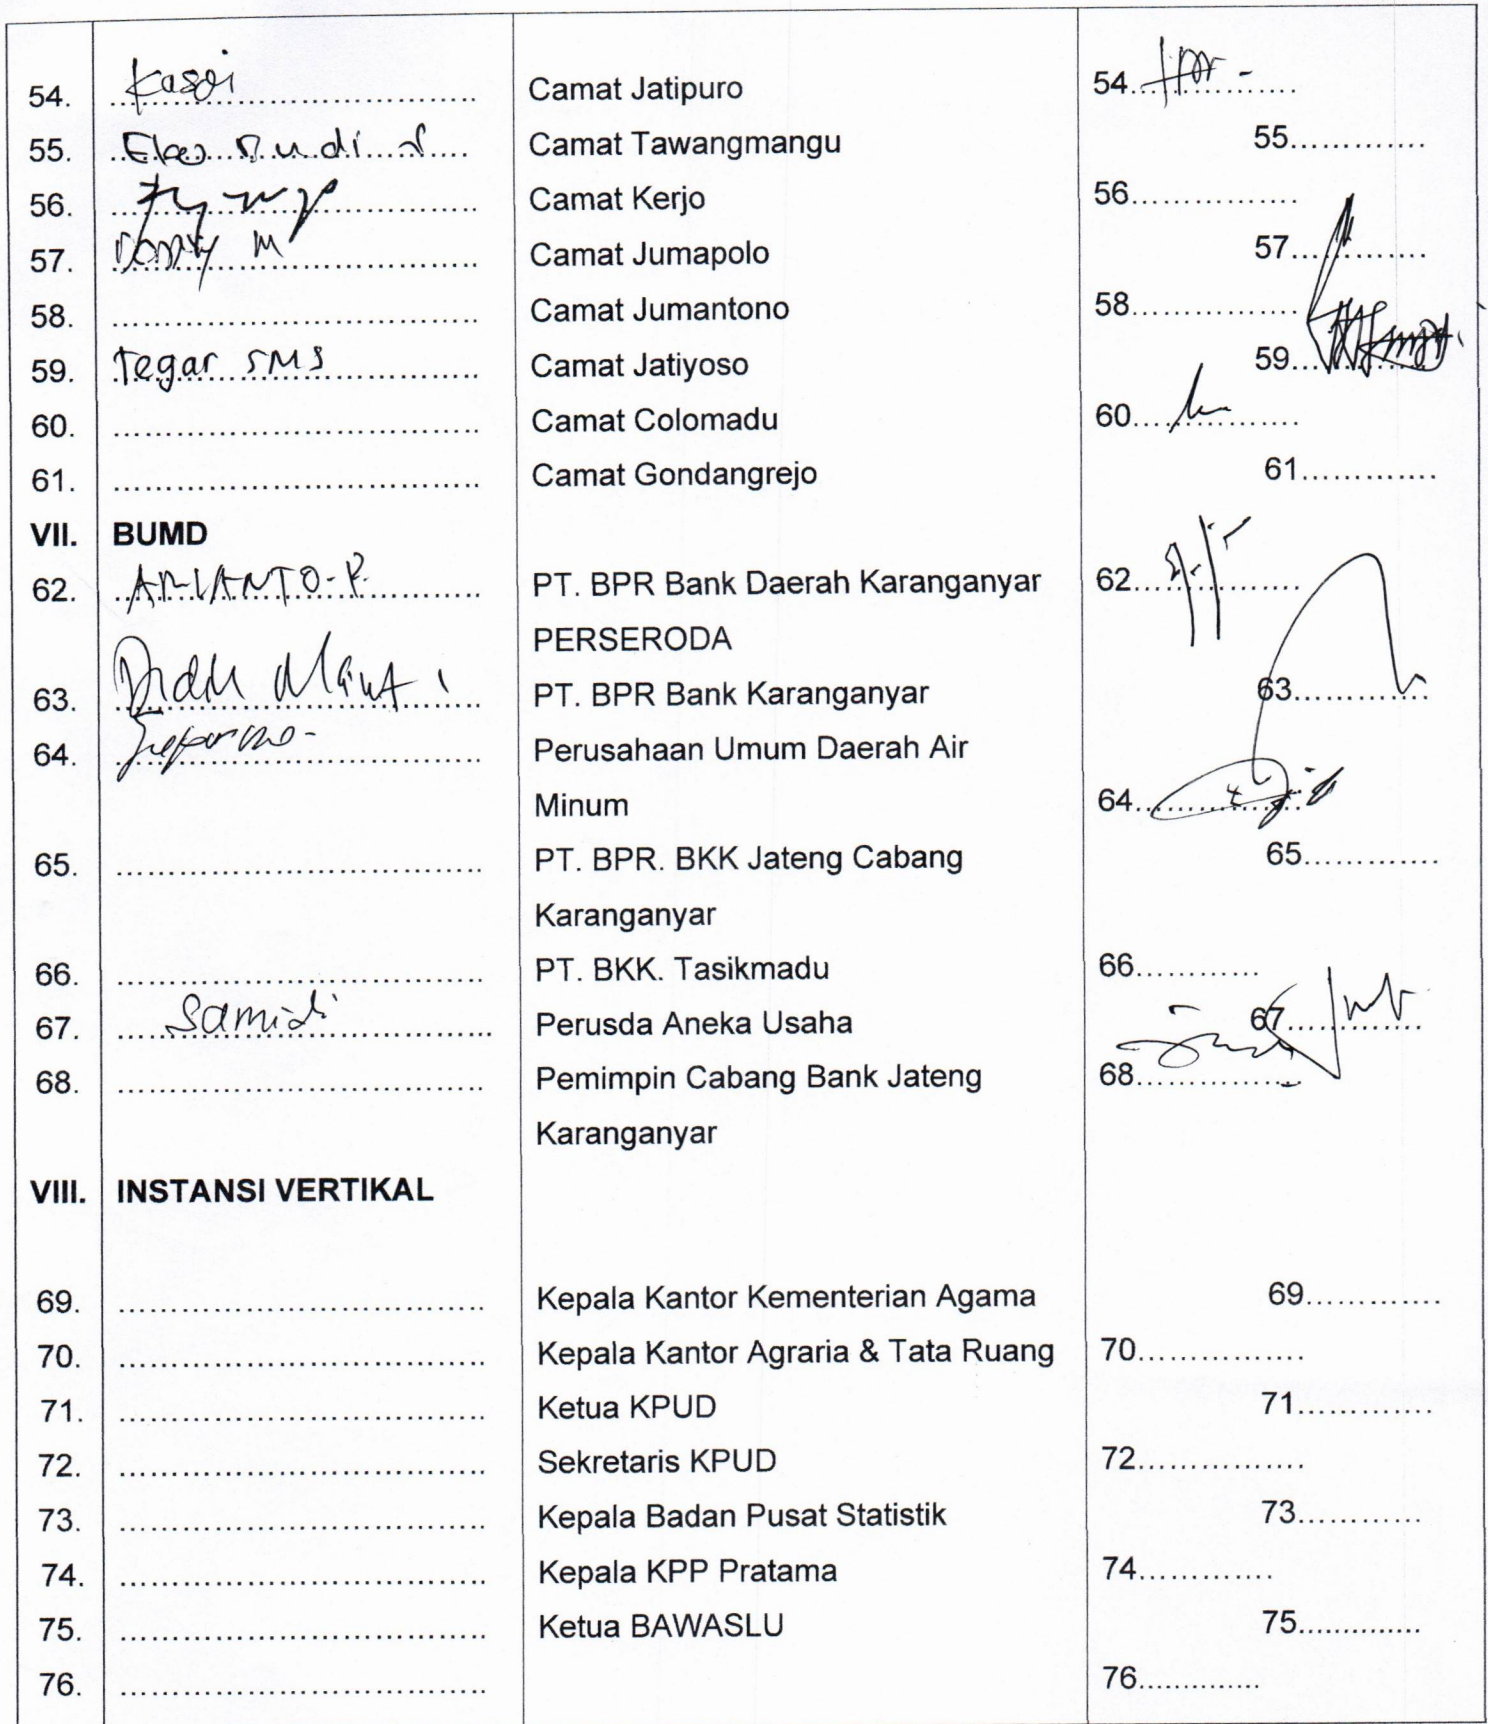 54. Kasdi Camat Jatipuro 54................
55. Eko Budi Camat Tawangmangu 55.............
56. .................................... Camat Kerjo 56................
57. M Camat Jumapolo 57.............
58. .................................... Camat Jumantono 58................
59. Tegar SMS Camat Jatiyoso 59.............
60. .................................... Camat Colomadu 60................
61. .................................... Camat Gondangrejo 61.............
VII. BUMD
62. PT. BPR Bank Daerah Karanganyar 62................
PERSERODA
63. PT. BPR Bank Karanganyar 63.............
64. Suparno- Perusahaan Umum Daerah Air
Minum 64................
65. .................................... PT. BPR. BKK Jateng Cabang 65.............
Karanganyar
66. .................................... PT. BKK. Tasikmadu 66............
67. Samidi Perusda Aneka Usaha 67.............
68. .................................... Pemimpin Cabang Bank Jateng 68................
Karanganyar
VIII. INSTANSI VERTIKAL
69. .................................... Kepala Kantor Kementerian Agama 69.............
70. .................................... Kepala Kantor Agraria & Tata Ruang 70................
71. .................................... Ketua KPUD 71.............
72. .................................... Sekretaris KPUD 72................
73. .................................... Kepala Badan Pusat Statistik 73............
74. .................................... Kepala KPP Pratama 74.............
75. .................................... Ketua BAWASLU 75..............
76. .................................... 76..............